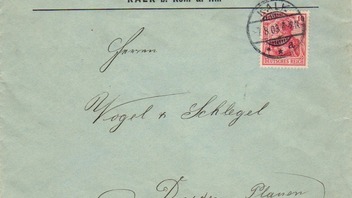 KALK b. Köln a. Rh.
KALK
DEUTSCHES REICH
Herren
Vogel & Schlegel
Dresden Plauen